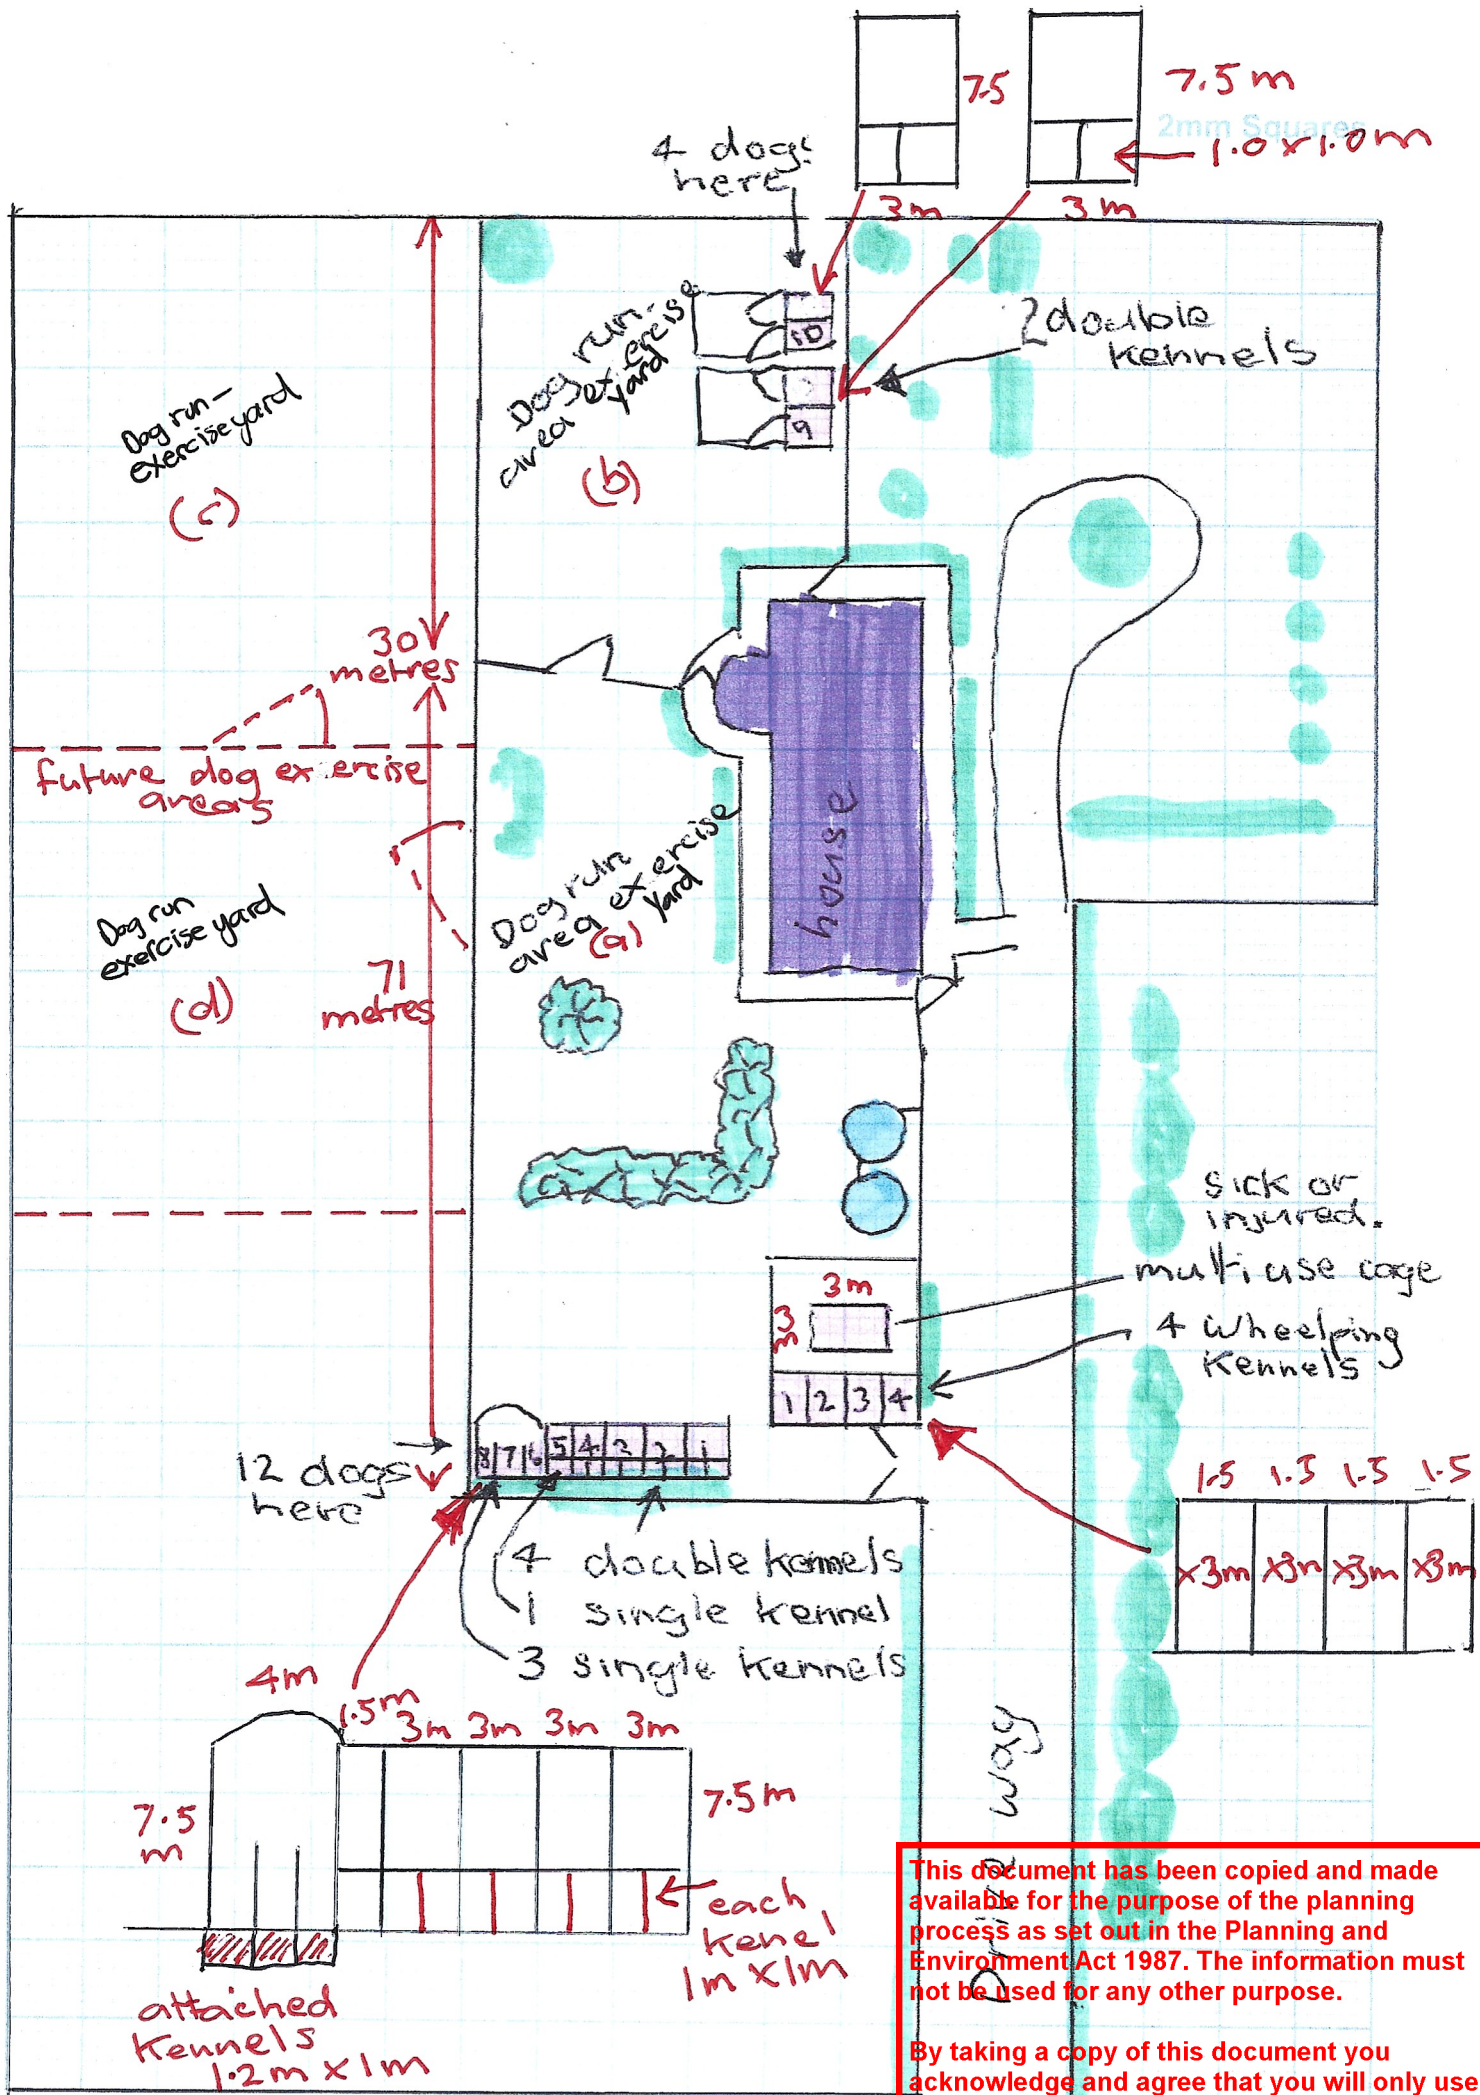 7.5
7.5m
2mm Squares
1.0x1.0m
3m
3m
4 dogs
here
2 double
kennels
10
9
Dog run-
area exercise
yard
(b)
Dog run-
exercise yard
(c)
30
metres
future dog exercise
areas
house
Dog run
area exercise
yard
(a)
Dog run
exercise yard
(d)
71
metres
Sick or
injured.
multi use cage
3m
3
m
4 Wheelping
Kennels
1 2 3 4
8 7 6 5 4 3 2 1
12 dogs
here
4 double kennels
1 single kennel
3 single kennels
1.5 1.5 1.5 1.5
x3m x3m x3m x3m
4m
1.5m 3m 3m 3m 3m
7.5
m
7.5m
each
kenel
1m x1m
attached
Kennels
1.2m x 1m
Drive way
This document has been copied and made
available for the purpose of the planning
process as set out in the Planning and
Environment Act 1987. The information must
not be used for any other purpose.
By taking a copy of this document you
acknowledge and agree that you will only use